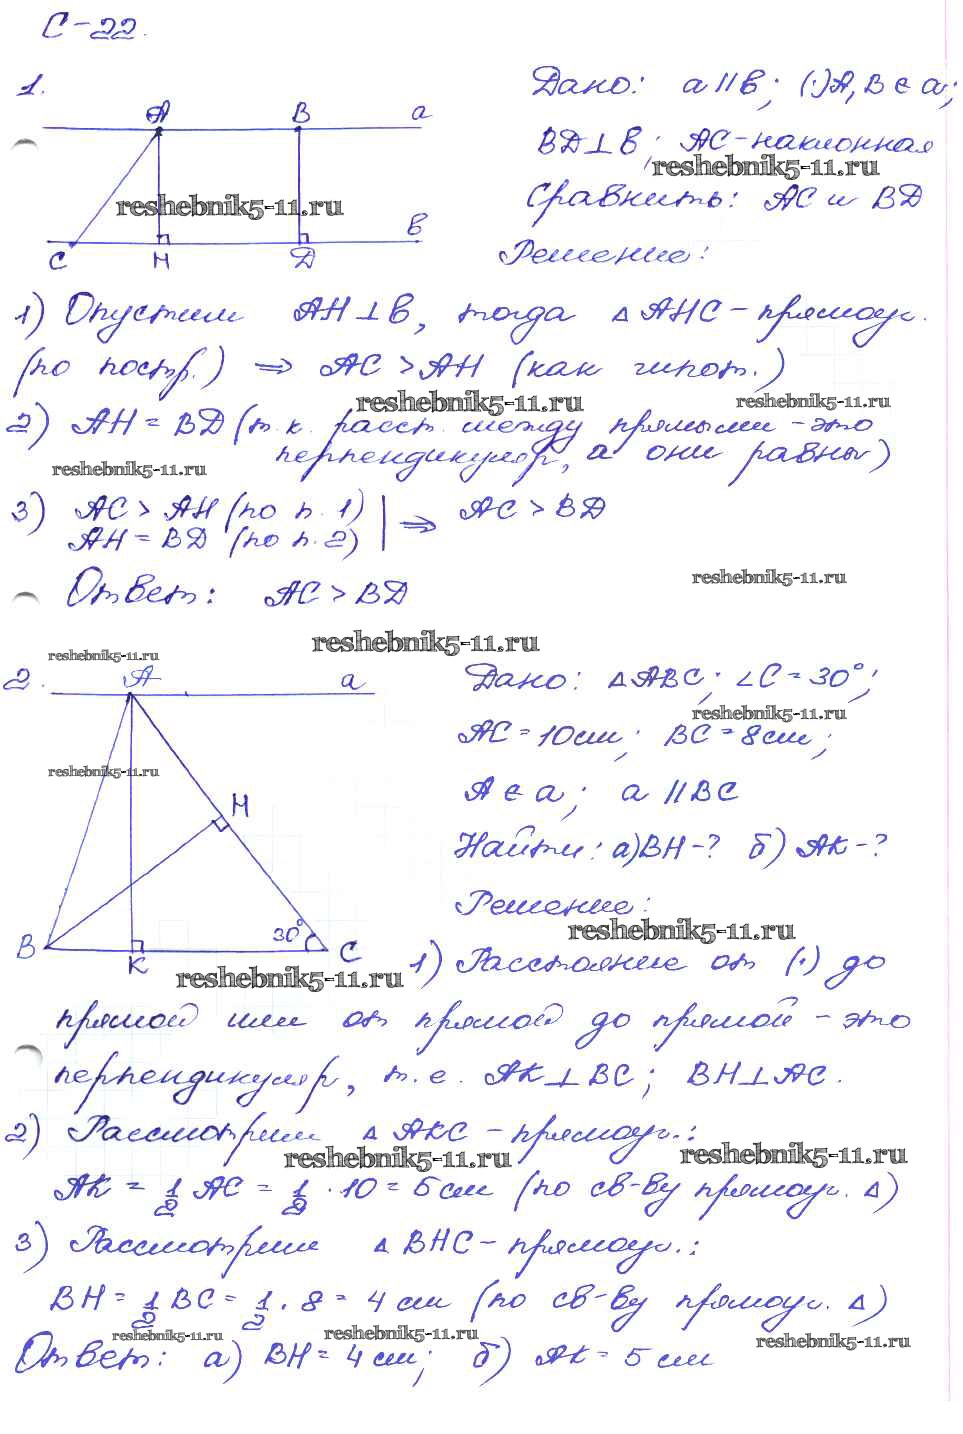 С-22.
1.
A B a
C H Д в
Дано: a || в; (·)A, B ∈ a;
BД ⊥ в; AC - наклонная
reshebnik5-11.ru
reshebnik5-11.ru
Сравнить: AC и BД
Решение:
1) Опустим AH ⊥ в, тогда △ AHC - прямоуг.
(по постр.) ⇒ AC > AH (как гипот.)
reshebnik5-11.ru
reshebnik5-11.ru
2) AH = BД (т.к. расст. между прямыми - это
перпендикуляр, а они равны)
reshebnik5-11.ru
3) AC > AH (по п. 1) | ⇒ AC > BД
AH = BД (по п. 2)
reshebnik5-11.ru
Ответ: AC > BД
reshebnik5-11.ru
reshebnik5-11.ru
2.
A a
H
B K 30° C
Дано: △ ABC; ∠C = 30°;
reshebnik5-11.ru
AC = 10 см; BC = 8 см;
reshebnik5-11.ru
A ∈ a; a || BC
Найти: а) BH - ? б) AK - ?
Решение:
reshebnik5-11.ru
reshebnik5-11.ru
1) Расстояние от (·) до
прямой или от прямой до прямой - это
перпендикуляр, т.е. AK ⊥ BC; BH ⊥ AC.
2) Рассмотрим △ AKC - прямоуг.:
reshebnik5-11.ru
reshebnik5-11.ru
AK = 1/2 AC = 1/2 · 10 = 5 см (по св-ву прямоуг. △)
3) Рассмотрим △ BHC - прямоуг.:
BH = 1/2 BC = 1/2 · 8 = 4 см (по св-ву прямоуг. △)
reshebnik5-11.ru
reshebnik5-11.ru
reshebnik5-11.ru
Ответ: а) BH = 4 см; б) AK = 5 см